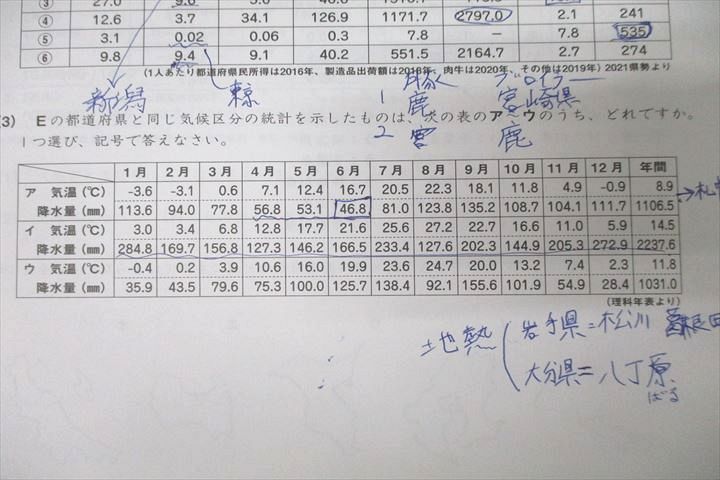 4 12.6 3.7 34.1 126.9 1171.7 2797.0 2.1 241
⑤ 3.1 0.02 0.06 0.3 7.8 － 7.8 535
⑥ 9.8 9.4 9.1 40.2 551.5 2164.7 2.7 274
(1人あたり都道府県民所得は2016年、製造品出荷額は2018年、肉牛は2020年、その他は2019年) 2021県勢より
新潟 東京 豚 ブロイラー
1 鹿 宮崎県
(3) Eの都道府県と同じ気候区分の統計を示したものは、次の表のア～ウのうち、どれですか。
2 宮 鹿
1つ選び、記号で答えなさい。
1月 2月 3月 4月 5月 6月 7月 8月 9月 10月 11月 12月 年間
ア 気温(℃) -3.6 -3.1 0.6 7.1 12.4 16.7 20.5 22.3 18.1 11.8 4.9 -0.9 8.9
降水量(mm) 113.6 94.0 77.8 56.8 53.1 46.8 81.0 123.8 135.2 108.7 104.1 111.7 1106.5
イ 気温(℃) 3.0 3.4 6.8 12.8 17.7 21.6 25.6 27.2 22.7 16.6 11.0 5.9 14.5
降水量(mm) 284.8 169.7 156.8 127.3 146.2 166.5 233.4 127.6 202.3 144.9 205.3 272.9 2237.6
ウ 気温(℃) -0.4 0.2 3.9 10.6 16.0 19.9 23.6 24.7 20.0 13.2 7.4 2.3 11.8
降水量(mm) 35.9 43.5 79.6 75.3 100.0 125.7 138.4 92.1 155.6 101.9 54.9 28.4 1031.0
(理科年表より)
地熱 岩手県=松川
大分県=八丁原
ばる